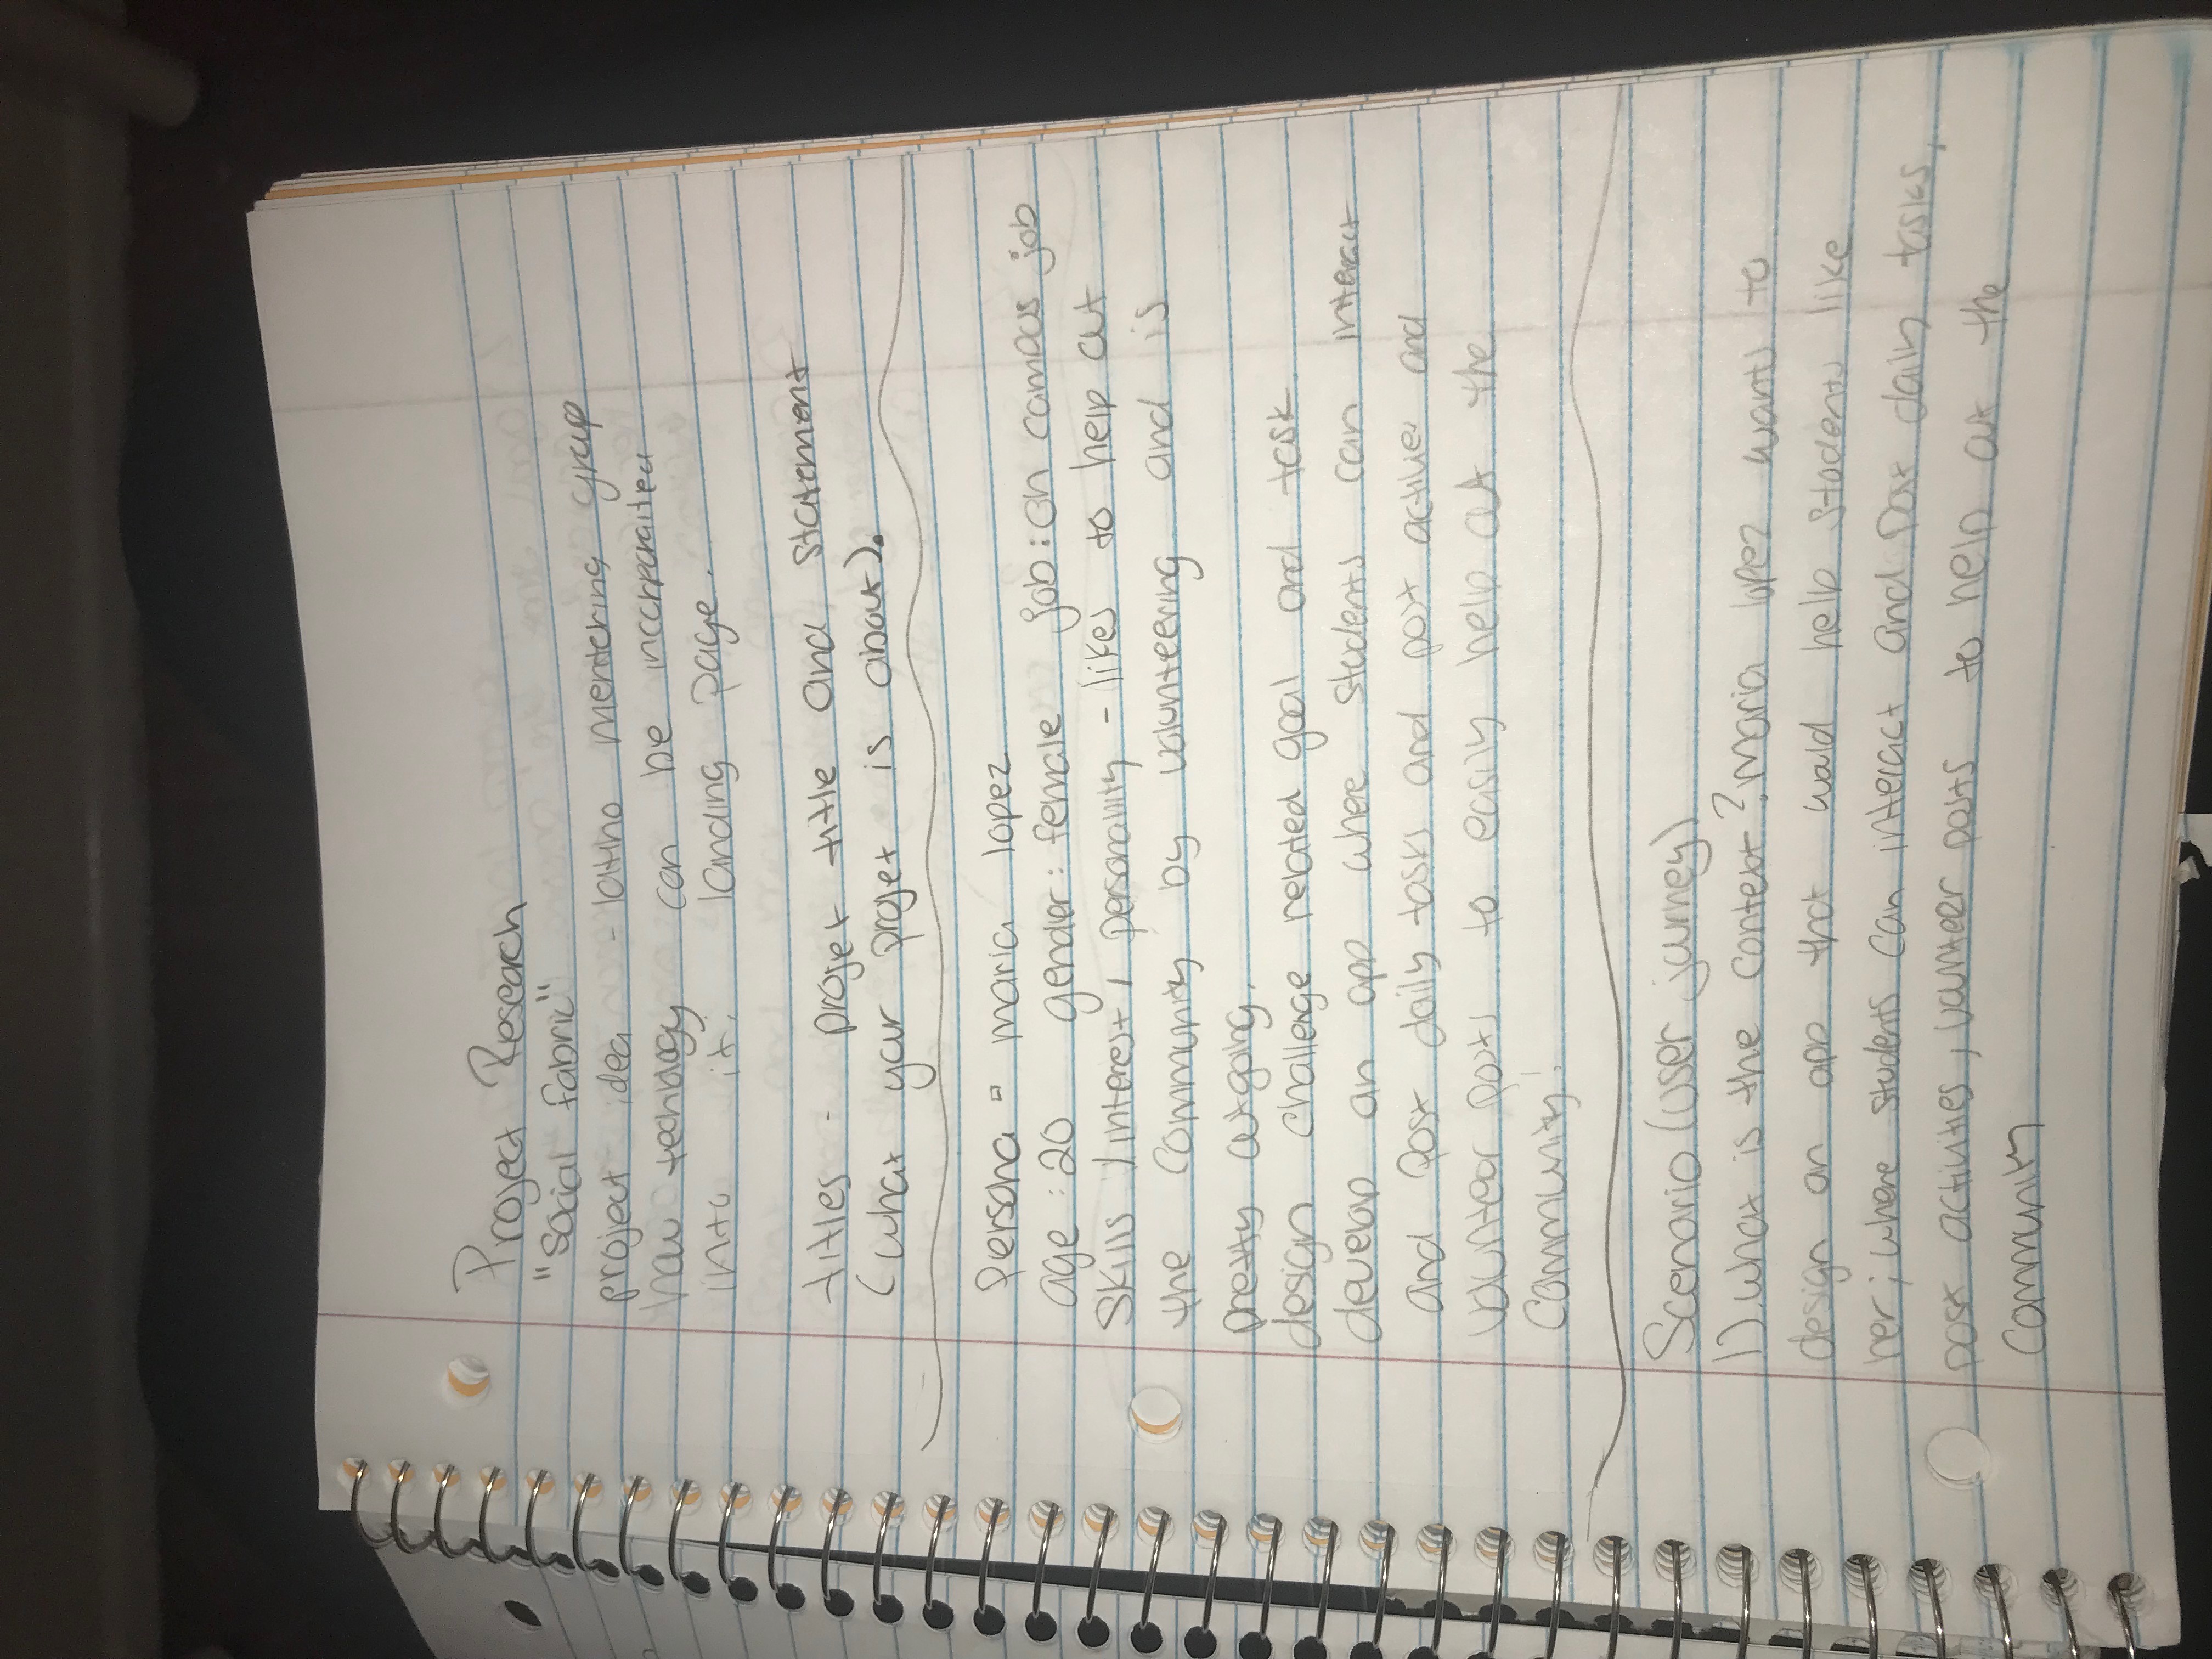 Project Research
"Social fabric"
project idea - latino mentoring group
how technology can be incorporated
into it. landing page.
titles - projet title and statement
(what your projet is about).
Persona = maria lopez
age : 20 gender : female job : on campus job
Skills / interest / personality - likes to help out
the community by volunteering and is
pretty outgoing.
design challenge related goal and task
develop an app where students can interact
and post daily tasks and post activies and
volunteer posts to easily help out the
Community!
Scenario (user journey)
1). what is the context? maria lopez wants to
design an app that would help students like
her; where students can interact and post daily tasks,
post activities, volunteer posts to help out the
Community